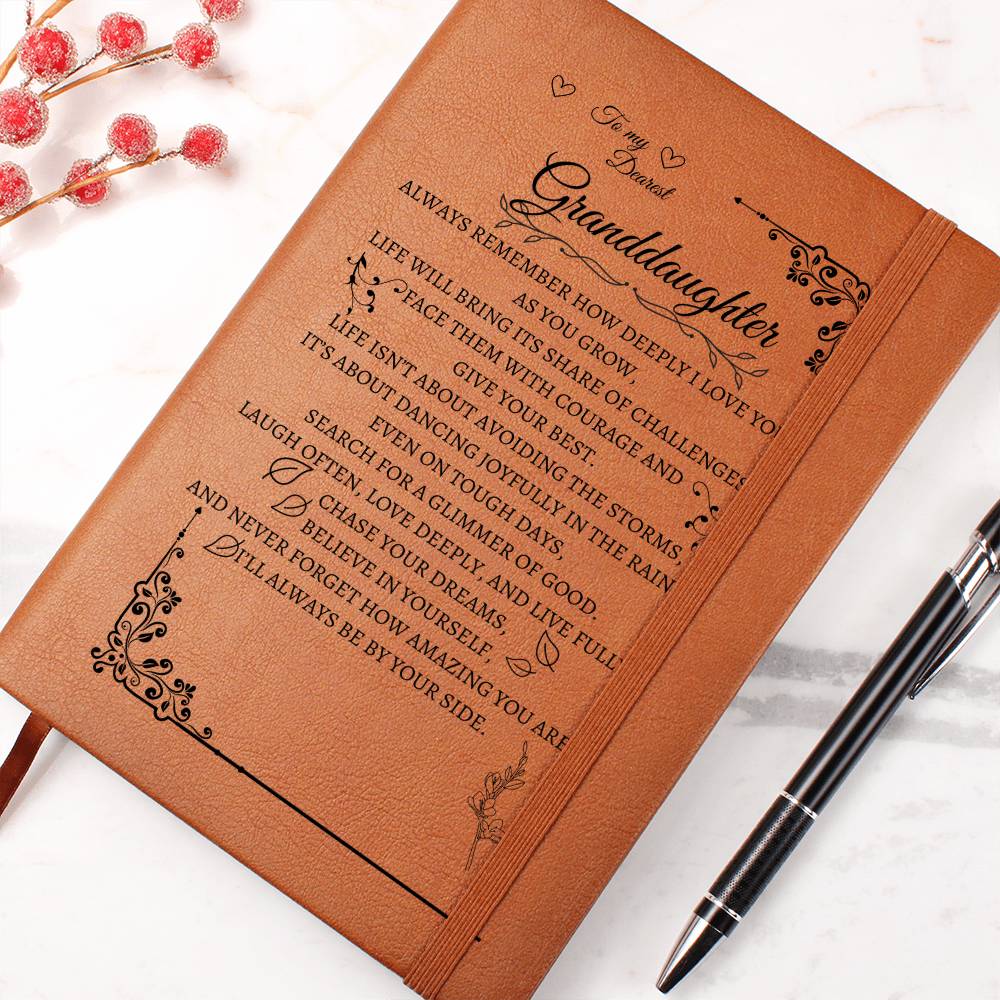 To my
Dearest
Granddaughter
ALWAYS REMEMBER HOW DEEPLY I LOVE YO
AS YOU GROW,
LIFE WILL BRING ITS SHARE OF CHALLENGES
FACE THEM WITH COURAGE AND
GIVE YOUR BEST.
LIFE ISN'T ABOUT AVOIDING THE STORMS,
IT'S ABOUT DANCING JOYFULLY IN THE RAIN
EVEN ON TOUGH DAYS,
SEARCH FOR A GLIMMER OF GOOD.
LAUGH OFTEN, LOVE DEEPLY, AND LIVE FULLY
CHASE YOUR DREAMS,
BELIEVE IN YOURSELF,
AND NEVER FORGET HOW AMAZING YOU ARE
I'LL ALWAYS BE BY YOUR SIDE.